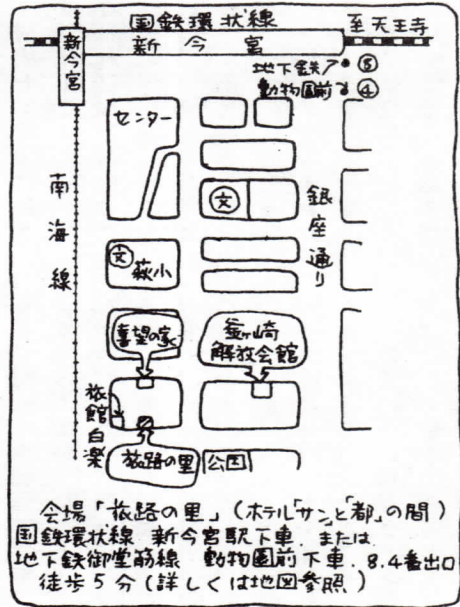 国鉄環状線
至天王寺
新今宮
新今宮
地下鉄 ⑧
動物園前 ④
センター
南海線
文
銀座通り
文 萩小
喜望の家
釜ヶ崎
解放会館
旅館白楽
旅路の里
公园
会場「旅路の里」(ホテル「サン」と「都」の間)
国鉄環状線 新今宮駅下車 または
地下鉄御堂筋線 動物園前下車 8.4番出口
徒歩5分(詳しくは地図参照)